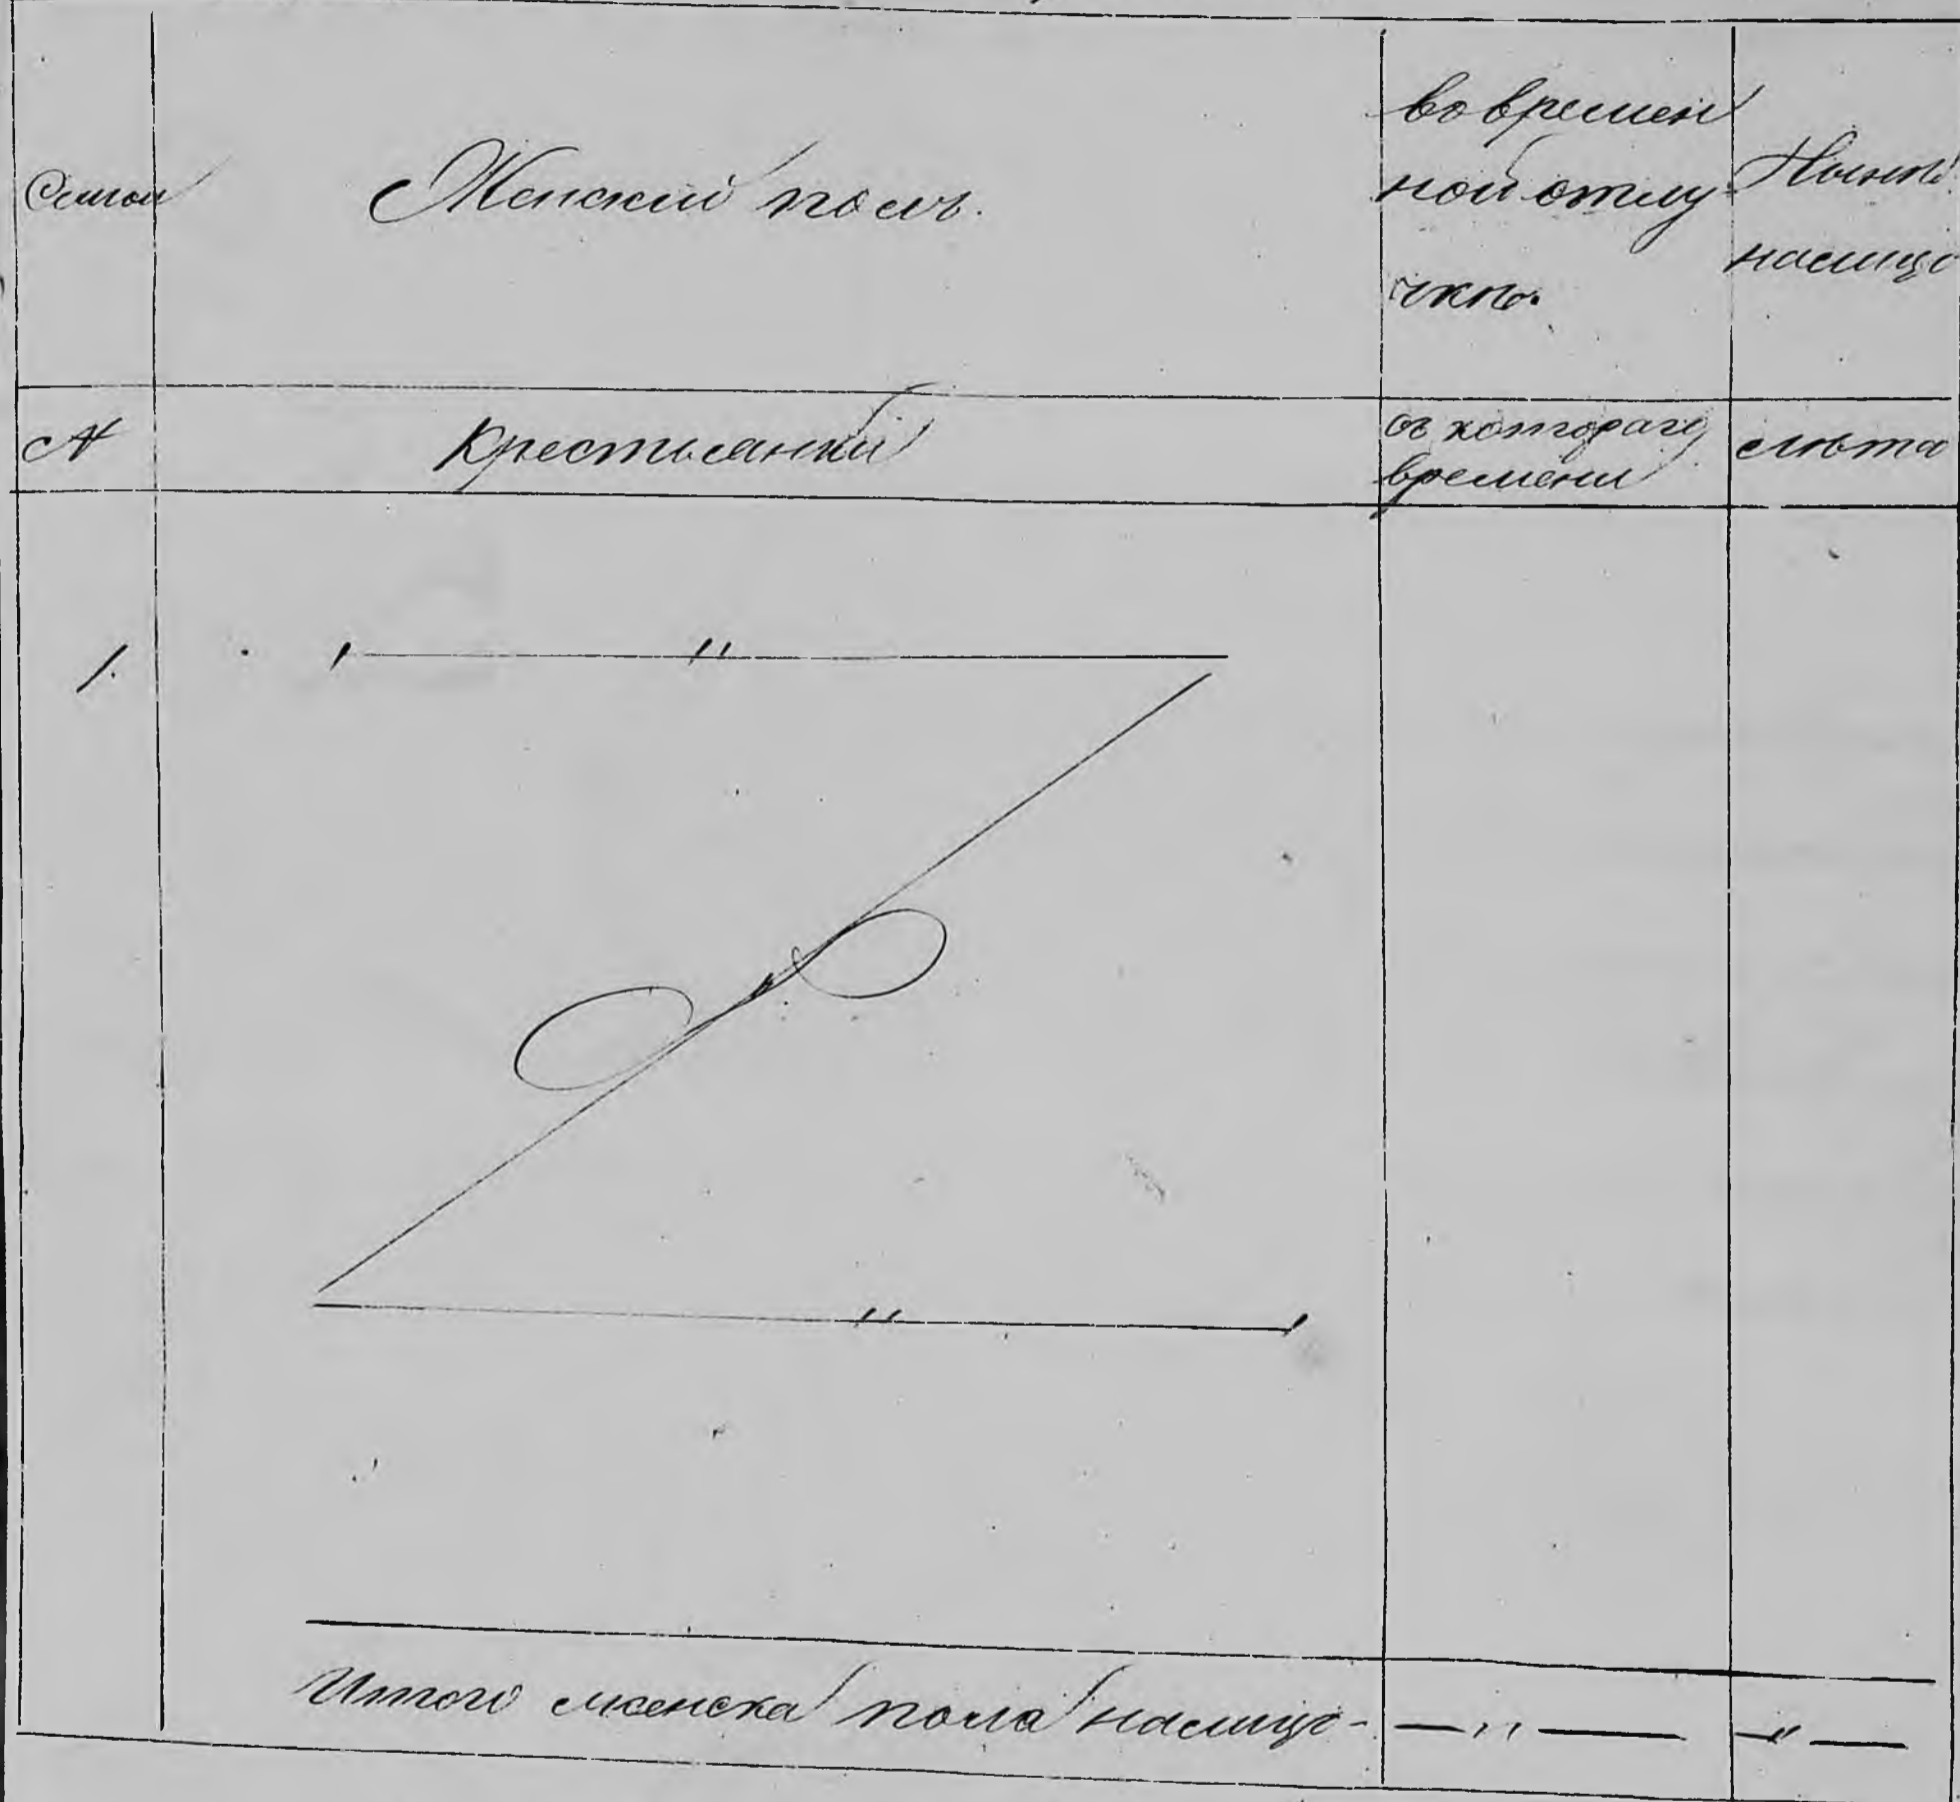 Семьи
Женский полъ.
во времен
ной отлу
чкѣ.
Нынѣ
налицо
№
Крестьянки
съ котораго
времени
лѣта
1.
Итого женска пола налицо - — " — — " —